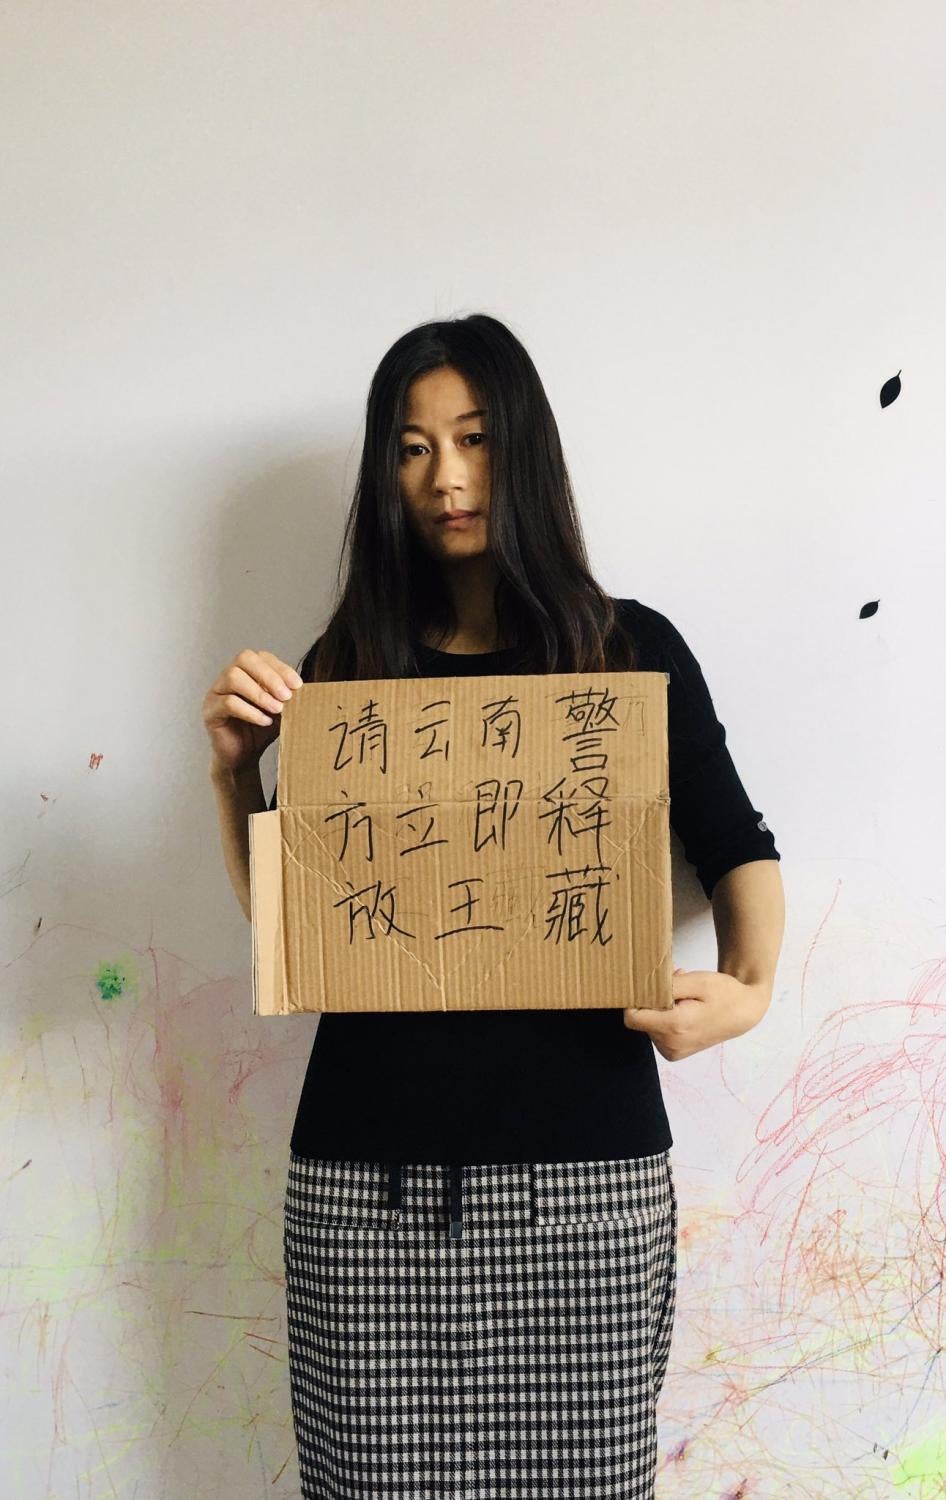 请云南警
方立即释
放王藏